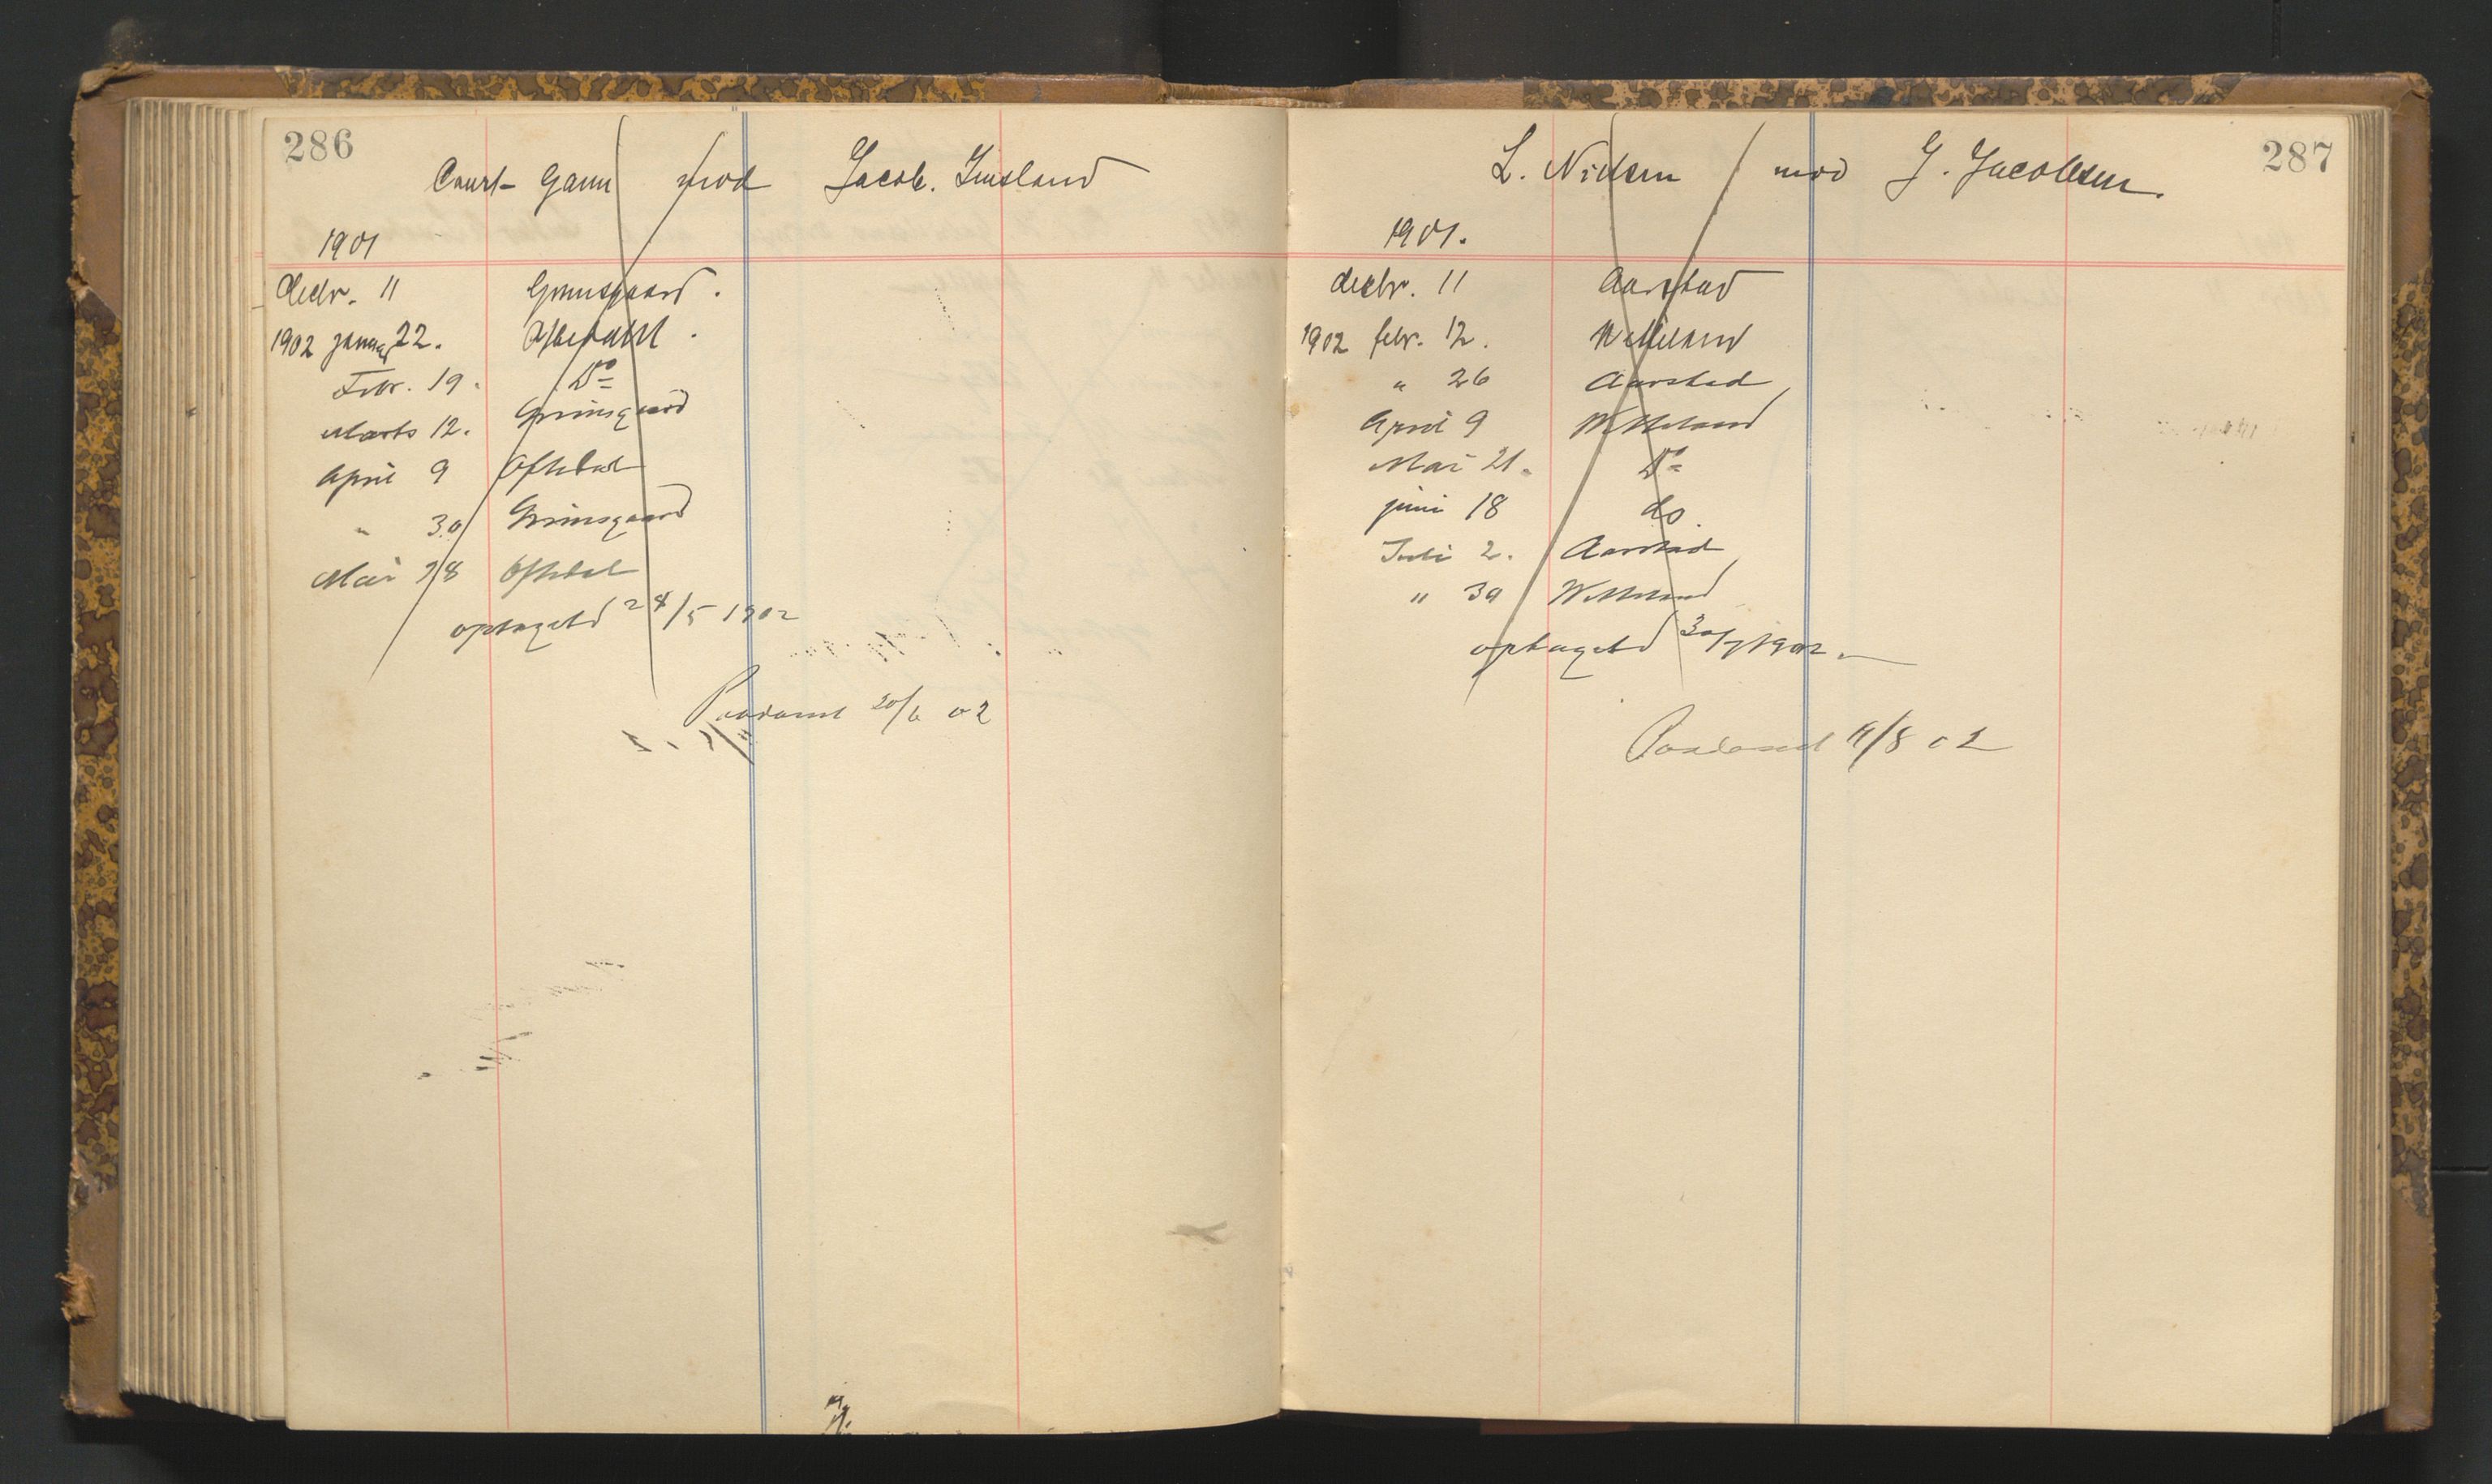 286
Court Gann mod Jacob. Imsland
1901
decbr. 11 Grimsgaard.
1902 januar 22.
Febr. 19. Do
Marts 12. Grimsgaard
April 9 Oftedal
" 30 Grimsgaard
Mai 28 Oftedal
optaget 28/5 1902
Paadømt 20/6 02
287
L. Nielsen mod J. Jacobsen.
1901.
decbr. 11 Aarstad
1902 febr. 12. Welleland
" 26 Aarstad
April 9 Welleland
Mai 21. Do
juni 18 do.
Juli 2. Aarstad
" 30 Welleland
optaget 30/7 1902.
Paadømt 9/8 02